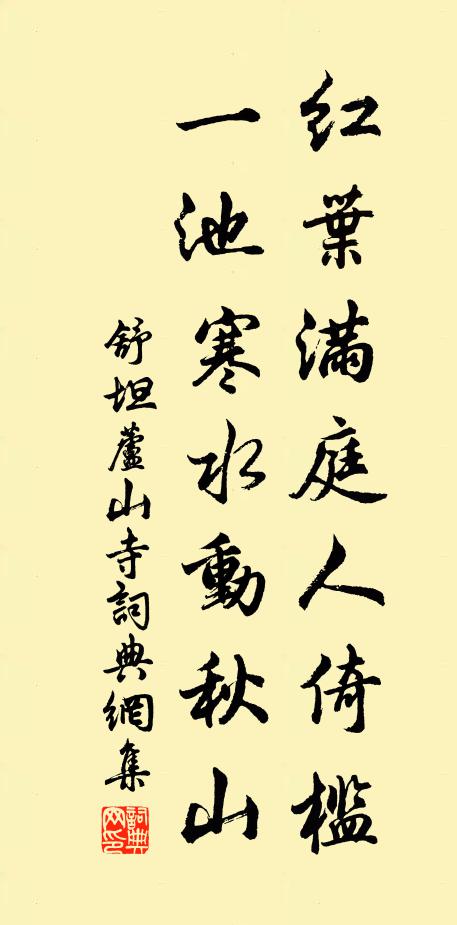 紅葉滿庭人倚檻
一池寒水動秋山
舒坦蘆山寺詞典網集
詞典網印